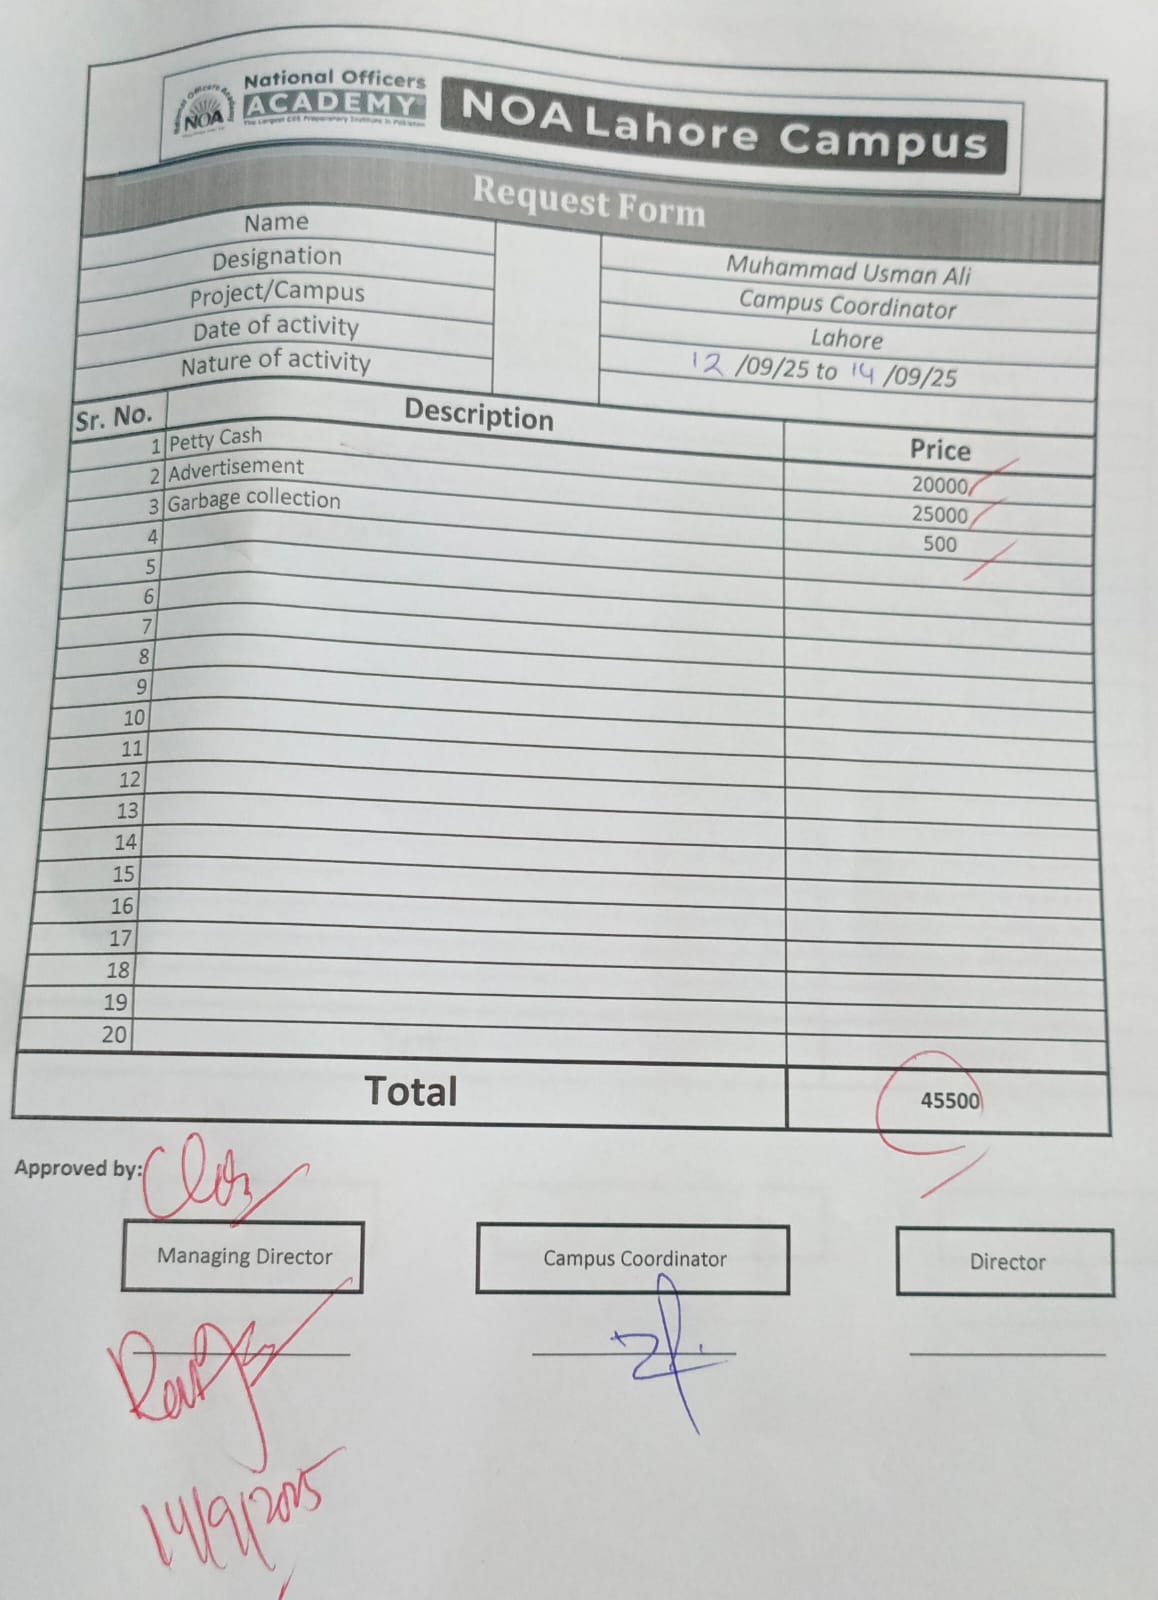 National Officers
ACADEMY
The Largest CSS Preparatory Institute in Pakistan
National Officers Academy
NOA
NOA Lahore Campus
Request Form
Name Muhammad Usman Ali
Designation Campus Coordinator
Project/Campus Lahore
Date of activity 12 /09/25 to 14 /09/25
Nature of activity
Sr. No. Description Price
1 Petty Cash 20000
2 Advertisement 25000
3 Garbage collection 500
4
5
6
7
8
9
10
11
12
13
14
15
16
17
18
19
20
Total 45500
Approved by:
Managing Director Campus Coordinator Director
14/9/2025